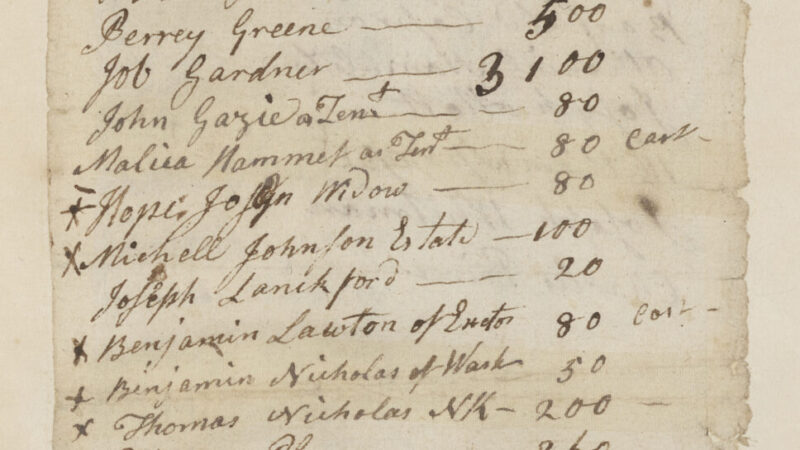 Perrey Greene — 500
Job Gardner — 3100
John Gazie as Tent — 80
Malica Hammet as Tent — 80 Cart -
x Hope Joslyn Widow — 80
x Michell Johnson Estate — 100
Joseph Lanckford — 20
x Benjamin Lawton of Exetor 80 Cort -
x Benjamin Nicholas of Wask 50
x Thomas Nicholas, NK - 200 -